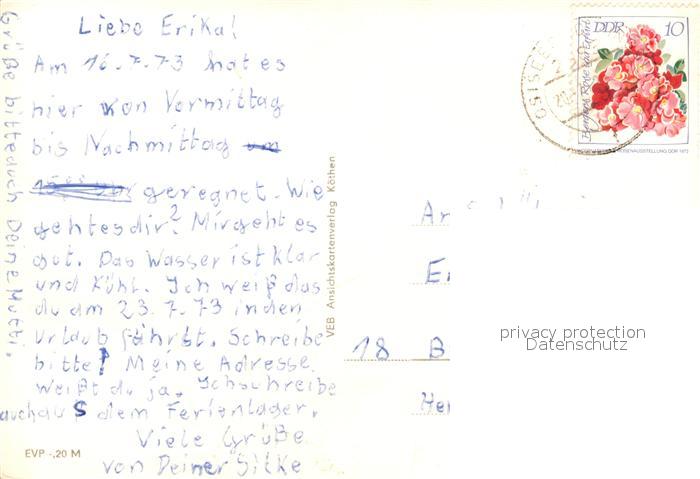 Liebe Erika!
Am 16.7.73 hat es
hier von Vormittag
bis Nachmittag um
geregnet. Wie
gehtes dir? Mir geht es
gut. Das Wasser ist klar
und Kühl. Ich weiß das
du am 23.7.73 in den
Urlaub fährst. Schreibe
bitte! Meine Adresse
weißt du ja. Ich schreibe
auch aus dem Ferienlager.
Viele Grüße
von Deiner Silke
Grüße bitte auch Deine Mutti.
EVP -,20 M
VEB Ansichtskartenverlag Köthen
DDR 10
Bergers Rose aus Erfurt
OSTSEE
18 B
privacy protection
Datenschutz